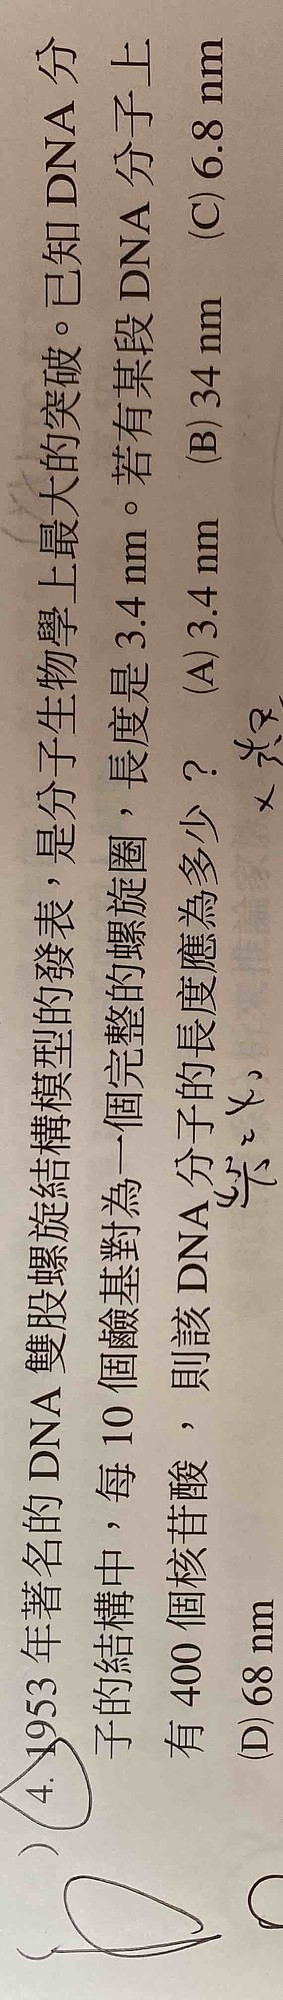 ( D ) 4. 1953 年著名的 DNA 雙股螺旋結構模型的發表，是分子生物學上最大的突破。已知 DNA 分
子的結構中，每 10 個鹼基對為一個完整的螺旋圈，長度是 3.4 nm。若有某段 DNA 分子上
有 400 個核苷酸，則該 DNA 分子的長度應為多少？ (A) 3.4 nm (B) 34 nm (C) 6.8 nm
(D) 68 nm